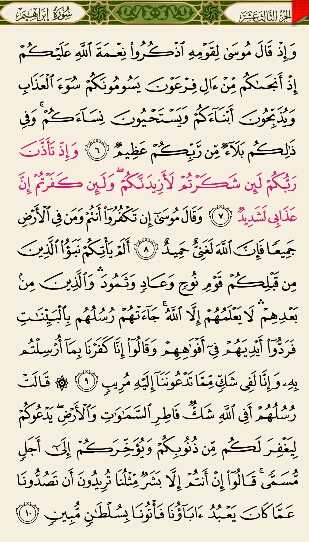 الجزء الثالث عشر سورة إبراهيم
وَإِذْ قَالَ مُوسَىٰ لِقَوْمِهِ ٱذْكُرُوا۟ نِعْمَةَ ٱللَّهِ عَلَيْكُمْ
إِذْ أَنجَىٰكُم مِّنْ ءَالِ فِرْعَوْنَ يَسُومُونَكُمْ سُوٓءَ ٱلْعَذَابِ
وَيُذَبِّحُونَ أَبْنَآءَكُمْ وَيَسْتَحْيُونَ نِسَآءَكُمْ ۚ وَفِى
ذَٰلِكُم بَلَآءٌ مِّن رَّبِّكُمْ عَظِيمٌ ٦ وَإِذْ تَأَذَّنَ
رَبُّكُمْ لَئِن شَكَرْتُمْ لَأَزِيدَنَّكُمْ ۖ وَلَئِن كَفَرْتُمْ إِنَّ
عَذَابِى لَشَدِيدٌ ٧ وَقَالَ مُوسَىٰٓ إِن تَكْفُرُوٓا۟ أَنتُمْ وَمَن فِى ٱلْأَرْضِ
جَمِيعًا فَإِنَّ ٱللَّهَ لَغَنِىٌّ حَمِيدٌ ٨ أَلَمْ يَأْتِكُمْ نَبَؤُا۟ ٱلَّذِينَ
مِن قَبْلِكُمْ قَوْمِ نُوحٍ وَعَادٍ وَثَمُودَ ۛ وَٱلَّذِينَ مِنۢ
بَعْدِهِمْ ۛ لَا يَعْلَمُهُمْ إِلَّا ٱللَّهُ ۚ جَآءَتْهُمْ رُسُلُهُم بِٱلْبَيِّنَٰتِ
فَرَدُّوٓا۟ أَيْدِيَهُمْ فِىٓ أَفْوَٰهِهِمْ وَقَالُوٓا۟ إِنَّا كَفَرْنَا بِمَآ أُرْسِلْتُم
بِهِۦ وَإِنَّا لَفِى شَكٍّ مِّمَّا تَدْعُونَنَآ إِلَيْهِ مُرِيبٍ ٩ ۞ قَالَتْ
رُسُلُهُمْ أَفِى ٱللَّهِ شَكٌّ فَاطِرِ ٱلسَّمَٰوَٰتِ وَٱلْأَرْضِ ۖ يَدْعُوكُمْ
لِيَغْفِرَ لَكُم مِّن ذُنُوبِكُمْ وَيُؤَخِّرَكُمْ إِلَىٰٓ أَجَلٍ
مُّسَمًّى ۚ قَالُوٓا۟ إِنْ أَنتُمْ إِلَّا بَشَرٌ مِّثْلُنَا تُرِيدُونَ أَن تَصُدُّونَا
عَمَّا كَانَ يَعْبُدُ ءَابَآؤُنَا فَأْتُونَا بِسُلْطَٰنٍ مُّبِينٍ ١٠